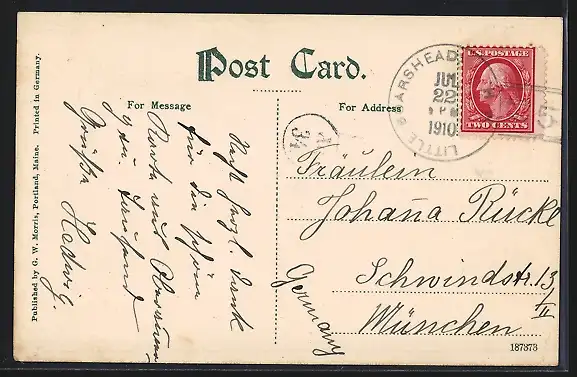 Post Card.
For Message
For Address
Published by G. W. Morris, Portland, Maine. Printed in Germany.
LITTLE BOARSHEAD
JUN
22
1910
U.S. POSTAGE
TWO CENTS
34
Recht herzl. Dank
für die schöne
Karte und
Grüße Hedwig.
Fräulein
Johanna Rücke
Schwindstr. 13/II
München
Germany
187373